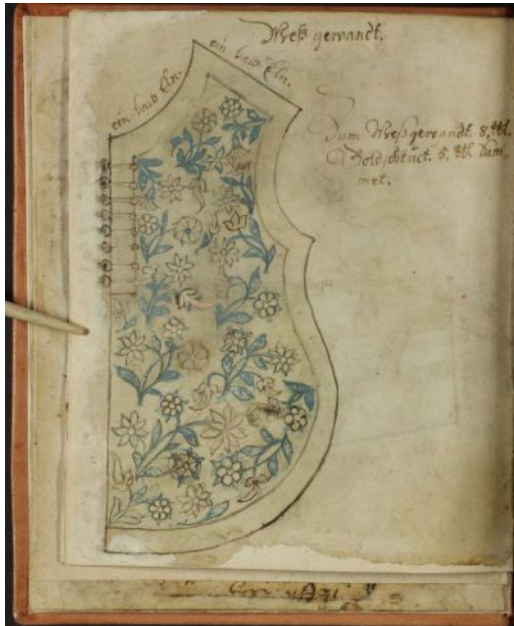 Meß gewandt.
ein halb Eln.
ein halb Eln.
Zum Meßgewandt. 8. Ell.
Goldstuct. 5. Ell Dam„
met.
14